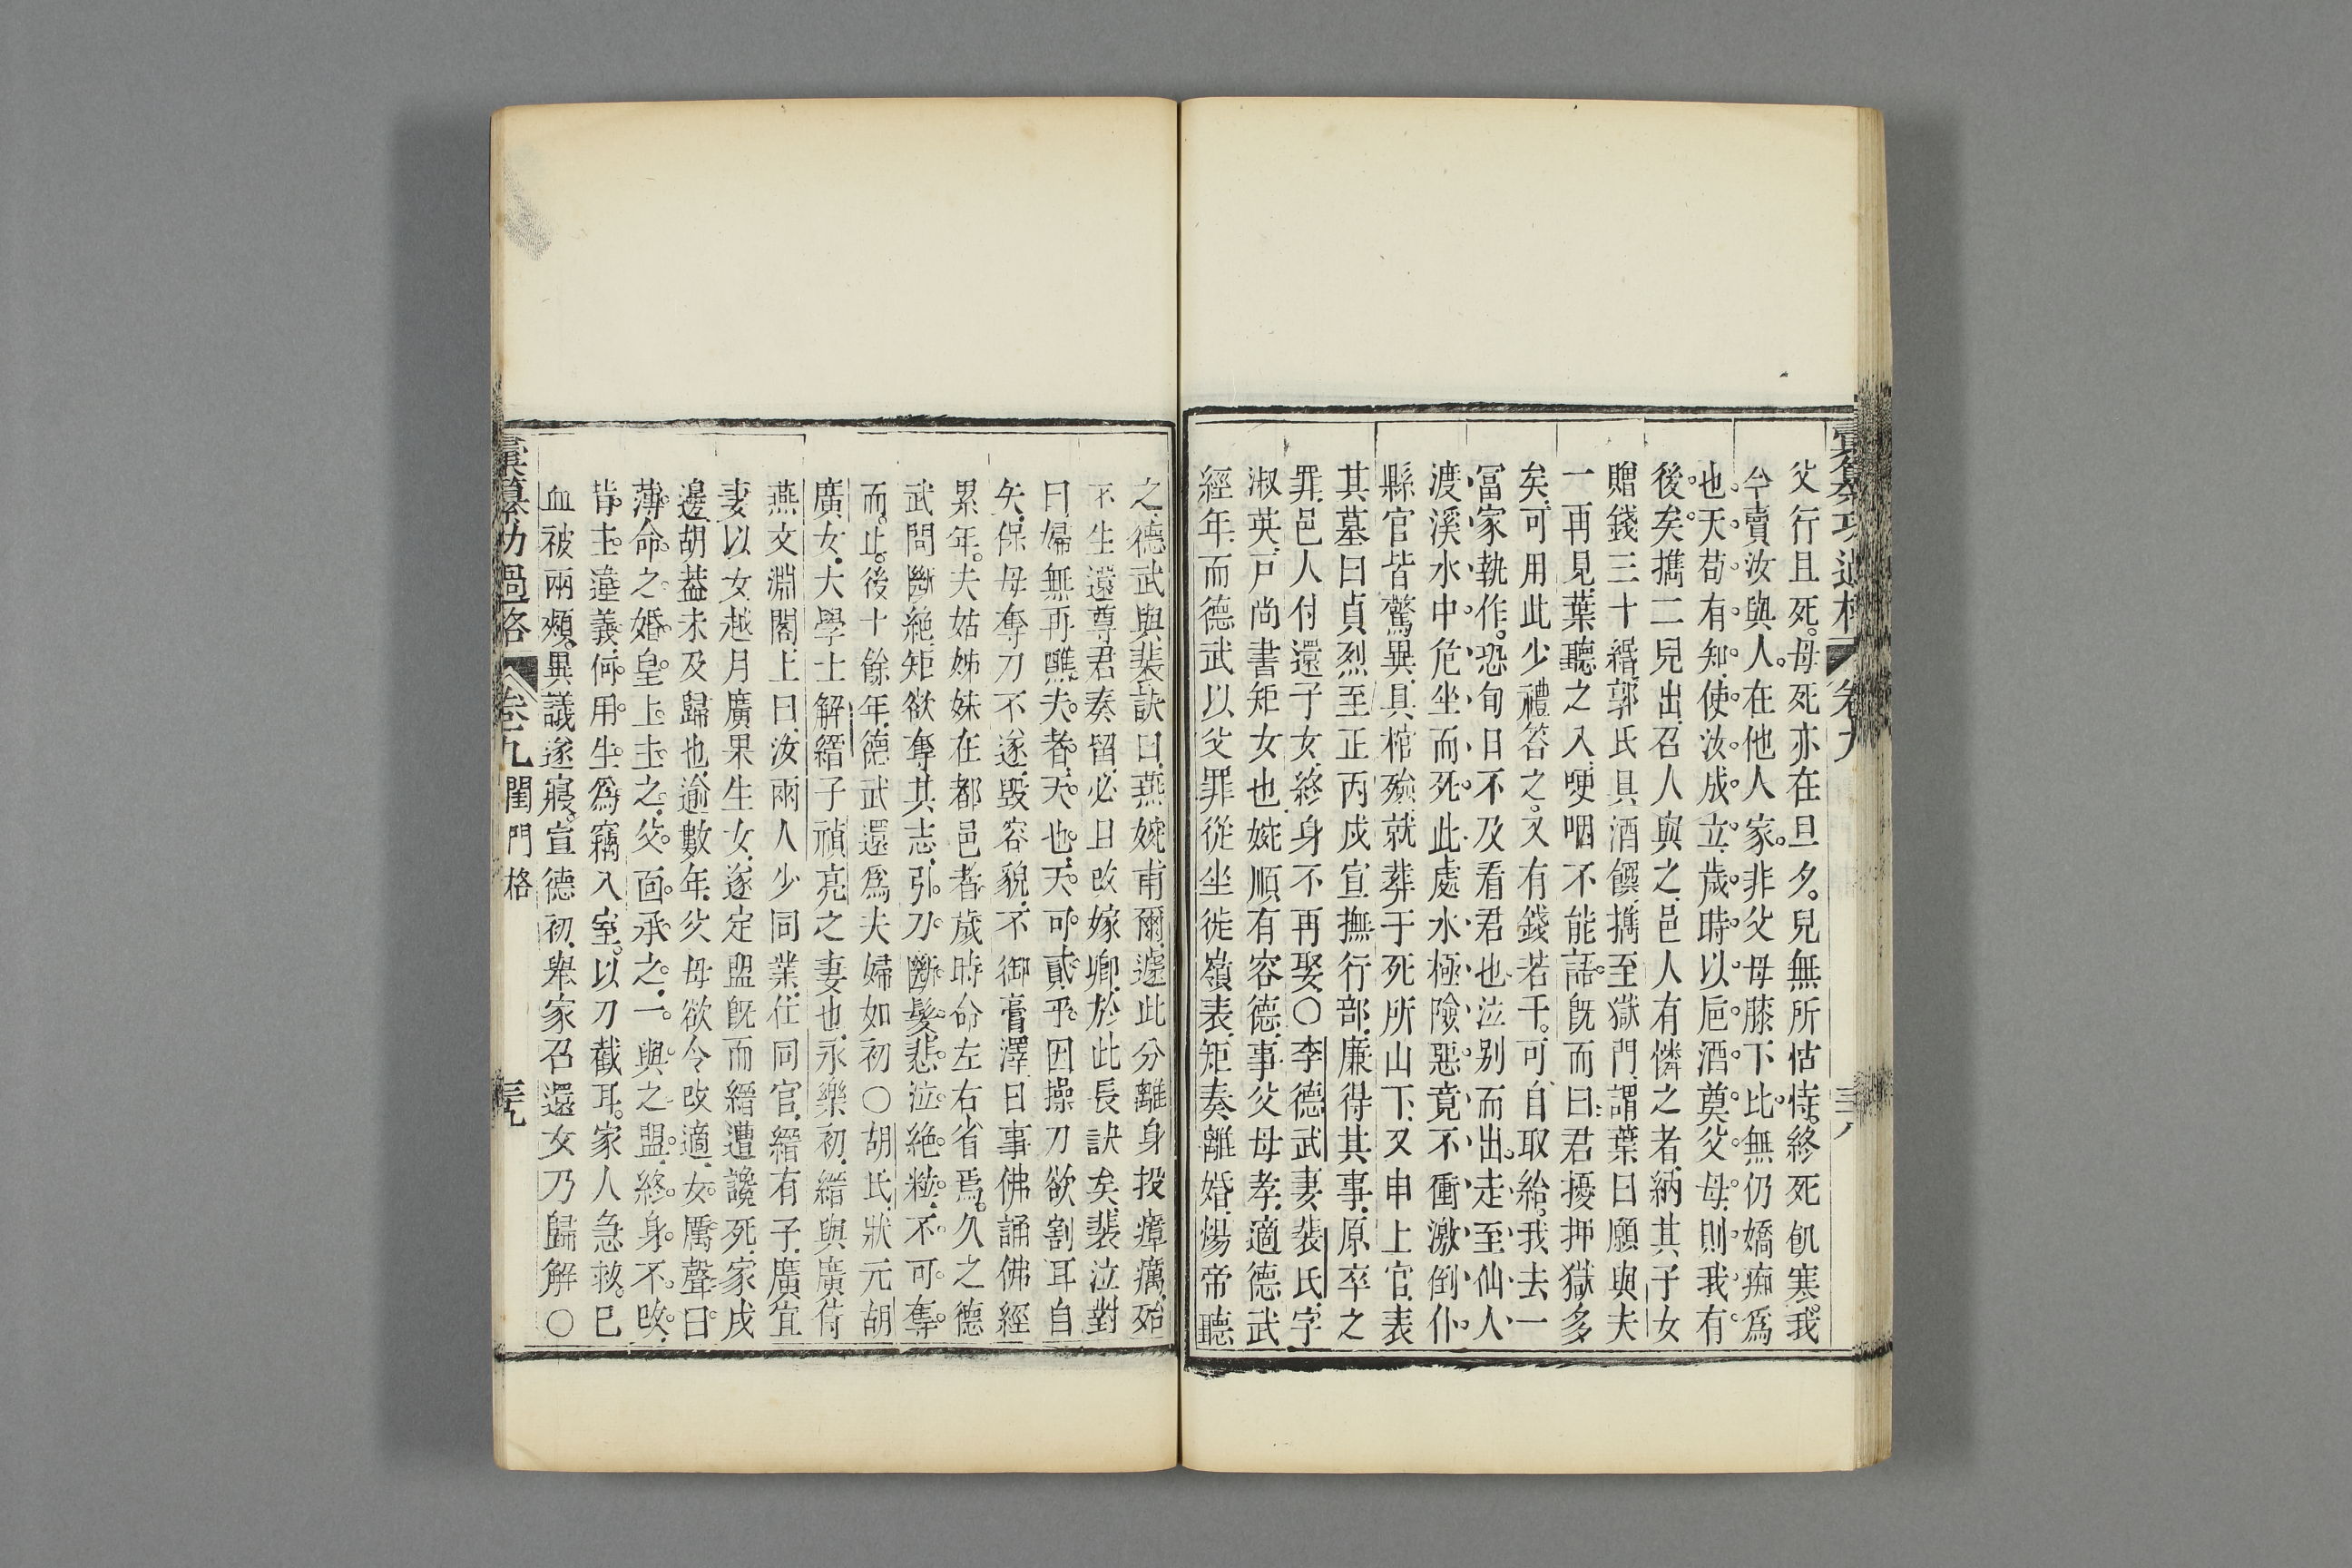 彙纂功過格 卷九 三十八
父行且死。母死亦在旦夕。兒無所怙恃。終死飢寒。我
今賣汝與人。在他人家。非父母膝下比。無仍嬌痴爲
也。天苟有知。使汝成立。歲時以卮酒奠父母。則我有
後矣。攜二兒出。召人與之。邑人有憐之者。納其子女
贈錢三十緡。郭氏具酒饌。攜至獄門。謂葉曰願與夫
一再見。葉聽之入。哽咽不能語。旣而曰。君擾押獄多
矣。可用此少禮答之。又有錢若干。可自取給。我去一
富家執作。恐旬日不及看君也。泣别而出。走至仙人
渡溪水中。危坐而死。此處水極險惡。竟不衝激倒仆。
縣官皆驚異。具棺殮。就葬于死所山下。又申上官。表
其墓曰貞烈。至正丙戌。宣撫行部。廉得其事。原卒之
罪。邑人付還子女。終身不再娶。○李德武妻。裴氏。字
淑英。戸尚書矩女也。婉順有容德。事父母孝。適德武
經年。而德武以父罪從坐。徙嶺表。矩奏離婚。煬帝聽
之。德武與裴訣曰。燕婉甫爾。遽此分離。身投瘴癘。殆
不生還。尊君奏留。必且改嫁卿。於此長訣矣。裴泣對
曰。婦無再醮。夫者。天也。天可貳乎。因操刀欲割耳自
矢。保母奪刀不遂。毀容貌。不御膏澤。日事佛誦佛經
累年。夫姑姊妹在都邑者。歲時命左右省焉。久之德
武問斷絶。矩欲奪其志。引刀斷髮。悲泣絶粒。不可奪
而止。後十餘年。德武還。爲夫婦如初○胡氏。狀元胡
廣女。大學士解縉子禎亮之妻也。永樂初。縉與廣侍
燕文淵閣。上曰。汝兩人少同業。仕同官。縉有子。廣宜
妻以女。越月廣果生女。遂定盟。旣而縉遭讒死。家戍
邊。胡葢未及歸也。逾數年。父母欲令改適。女厲聲曰。
薄命之婚。皇上主之。父面承之。一與之盟。終身不改。
背主違義。何用生爲。竊入室。以刀截耳。家人急救。巳
血被兩頰。異議遂寢。宣德初。舉家召還。女乃歸解○
彙纂功過格 卷九 閨門格 三十九